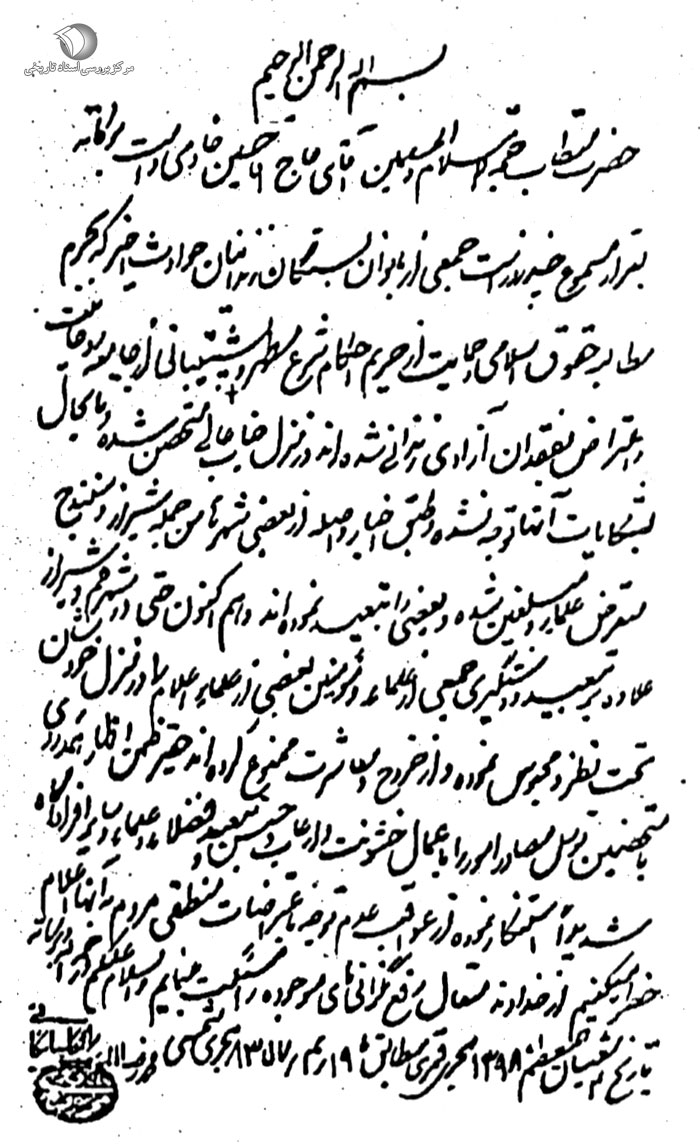 مرکز بررسی اسناد تاریخی
بسم الله الرحمن الرحیم
حضرت مستطاب حجة الاسلام والمسلمین آقای حاج آقا حسین خادمی دامت برکاته
بقرار مسموع چند روز است جمعی از بانوان بستگان زندانیان حوادث اخیر که بجرم
مطالبه حقوق اسلامی و حمایت از حریم احکام شرع مطهر و پشتیبانی از جامعه روحانیت
و اعتراض بفقدان آزادی زندانی شده اند در منزل جناب عالی متحصن شده و تا بحال
بشکایات آنها توجه نشده و طبق اخبار واصله از بعضی شهرها من جمله شیراز و سنندج
متعرض علماء و مبلغین شده و بعضی را تبعید نموده اند و هم اکنون حتی در شهر قم و شیراز
علاوه بر تبعید و دستگیری جمعی از علماء و مبعضی از علماء اعلام را در منزل خودشان
تحت نظر و محبوس نموده و از خروج و معاشرت ممنوع کرده اند حقیر ضمن اظهار همدردی
با متحصنین توسل مصادر امور را باعمال خشونت و ارعاب و حبس و تبعید فضلاء و علماء و سایر افراد آگاه
شدیداً استنکار نموده از عواقب عدم توجه باعتراضات منطقی مردم به آنها اعلام
خطر میکنیم از خداوند متعال رفع نگرانی های موجوده را مسئلت مینمایم والسلام علیکم ورحمة الله وبرکاته
تاریخ شعبان المعظم ۱۳۹۸ هجری قمری مطابق ۱۹ هجری شمسی
محمد رضا الموسوی الگلپایگانی